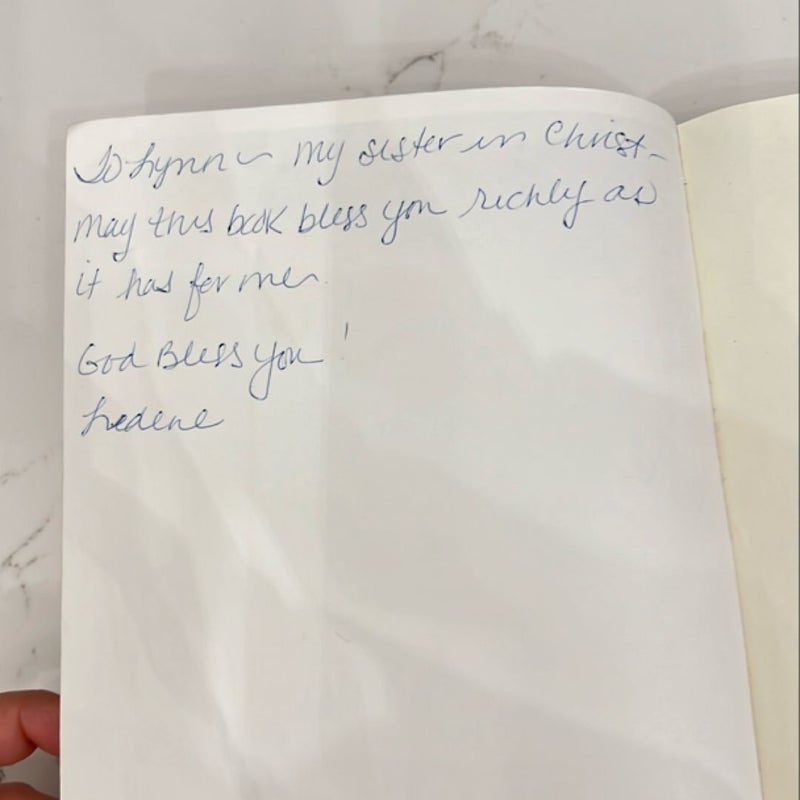 To Lynn - my sister in Christ -
may this book bless you richly as
it has for me.
God Bless you!
Ledene